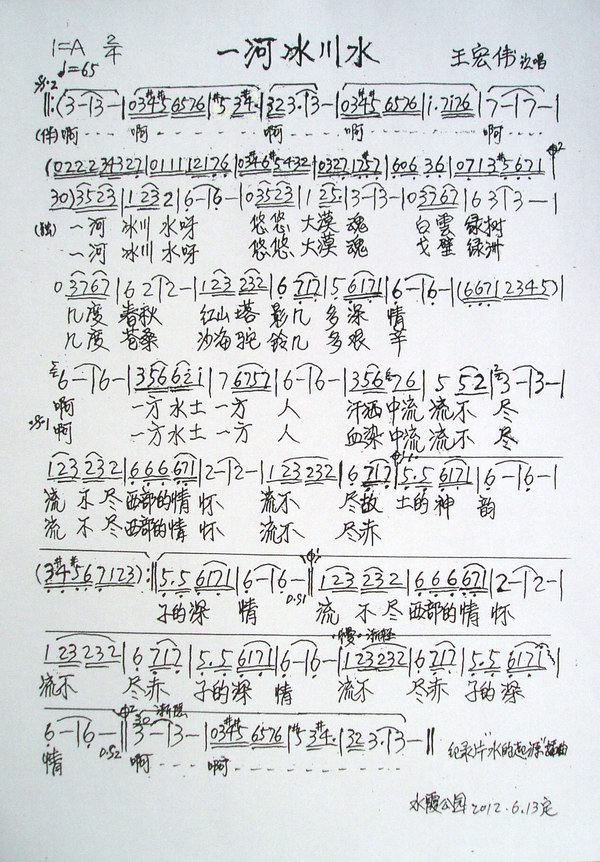 1=A 2/4 一河冰川水 王宏伟演唱
♩=65
𝄋.2
‖:(3-|3-|03#4#5 6576|#5 3#4.|323.|3-|03#4#5 6576|i.7i76|7-|7-|
(伴)啊 啊 啊 啊 啊
(022234327|011112176|03#46#5432|0327 1#257|606 36|0713#5671|
30)3523|1232|6-|6-|03523|1 25.|3-|3-|03767|63|3-|
(独) 一河 冰川 水呀 悠悠 大漠 魂 白雲 绿树
一河 冰川 水呀 悠悠 大漠 魂 戈壁 绿洲
03767|62|2-|123 232|6 717|5 6171|6-|6-|(6671 2345)|
几度 春秋 红山 塔 影几 多深 情
几度 苍桑 沙海 驼 铃几 多艰 辛
6-|6-|35666i|76757|6-|6-|356 76|5 52|3-|3-|
啊 一方 水土 一方 人 汗洒 中流 流不 尽
𝄋.1 啊 一方 水土 一方 人 血染 中流 流不 尽
123 232|666671|2-|2-|123232|6 717|5.5 6171|6-|6-|
流 不 尽 西部的情 怀 流不 尽故 土的 神 韵
流 不 尽 西部的情 怀 流不 尽赤
(3#4#567123):‖5.5 6171|6-|6-‖123 232|666671|2-|2-|
子的深 情 D.S1 流 不 尽 西部的情 怀
·慢·渐轻
123232|6 717|5.5 6171|6-|6-|123232|6 717|5.5 6171|
流不 尽赤 子的深 情 流不 尽赤 子的深
6-|6-‖3-|3-|03#4#5 6576|#5 3#4.|323.|3-‖ 纪录片"水的起源"插曲
情 D.S2 啊 啊
水霞公园 2012.6.13定